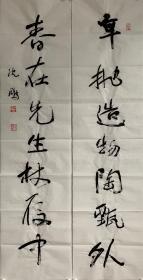 卓挑造物陶甄外
春在先生杖履中
沈鹏